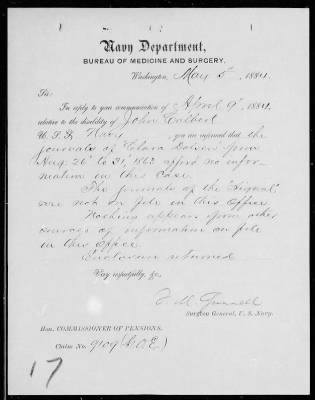 Navy Department,
BUREAU OF MEDICINE AND SURGERY.
Washington, May 5th, 1884.
Sir:
In reply to your communication of April 9th, 1884,
relative to the disability of John Colbert
U.S. Navy, you are informed that the
journals of "Clara Dolsen" from
Aug. 26" to 31, 1862 afford no infor-
mation in this case.
The journals of the
are not on file in this Office.
Nothing appears from other
sources of information on file
in this Office.
Enclosure returned
Very respectfully, &c.,
Surgeon General, U. S. Navy.
Hon. COMMISSIONER OF PENSIONS.
Claim No. 9109
17